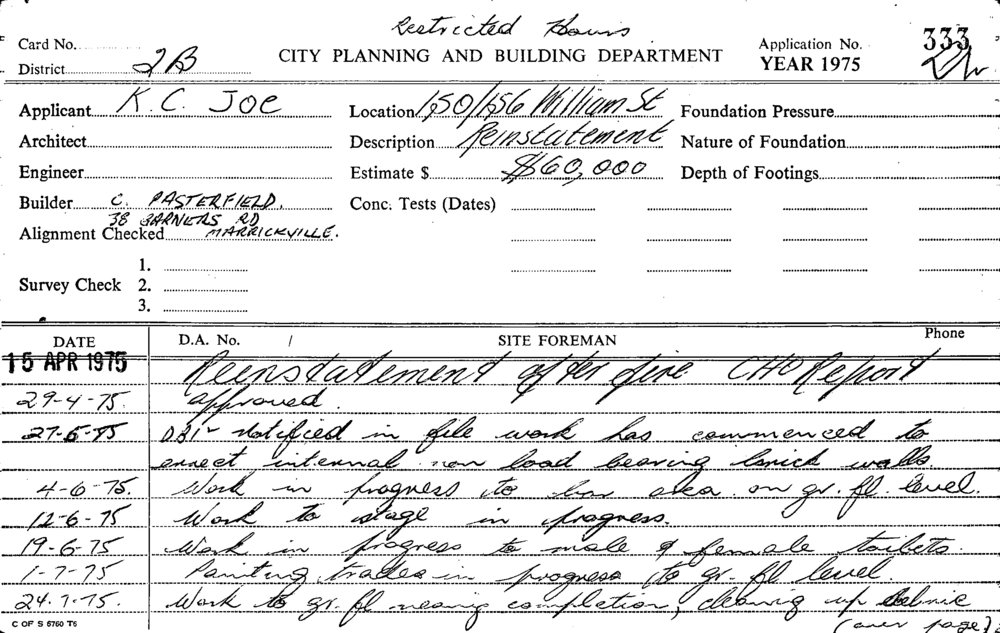 Restricted Hours
Card No.
333
CITY PLANNING AND BUILDING DEPARTMENT
Application No.
YEAR 1975
District 2B
Applicant K.C. JOE
Location 150/156 William St
Foundation Pressure
Architect
Description Reinstatement
Nature of Foundation
Engineer
Estimate $ $60,000
Depth of Footings
Builder C. PASTERFIELD.
Conc. Tests (Dates)
38 GARNERS RD
Alignment Checked MARRICKVILLE.
1.
Survey Check 2.
3.
DATE D.A. No. / SITE FOREMAN Phone
15 APR 1975 Reinstatement after fire CHO Report
29-4-75. approved.
27-5-75 notified in file work has commenced to
errect internal non load bearing brick walls.
4-6-75. Work in progress to bar area on gr. fl. level.
12-6-75 Work to stage in progress.
19-6-75 Work in progress to male & female toilets.
1-7-75 Painting trades in progress to gr. fl level.
24.7.75. Work to gr. fl nearing completion, cleaning up
C OF S 5760 T6 (over page)